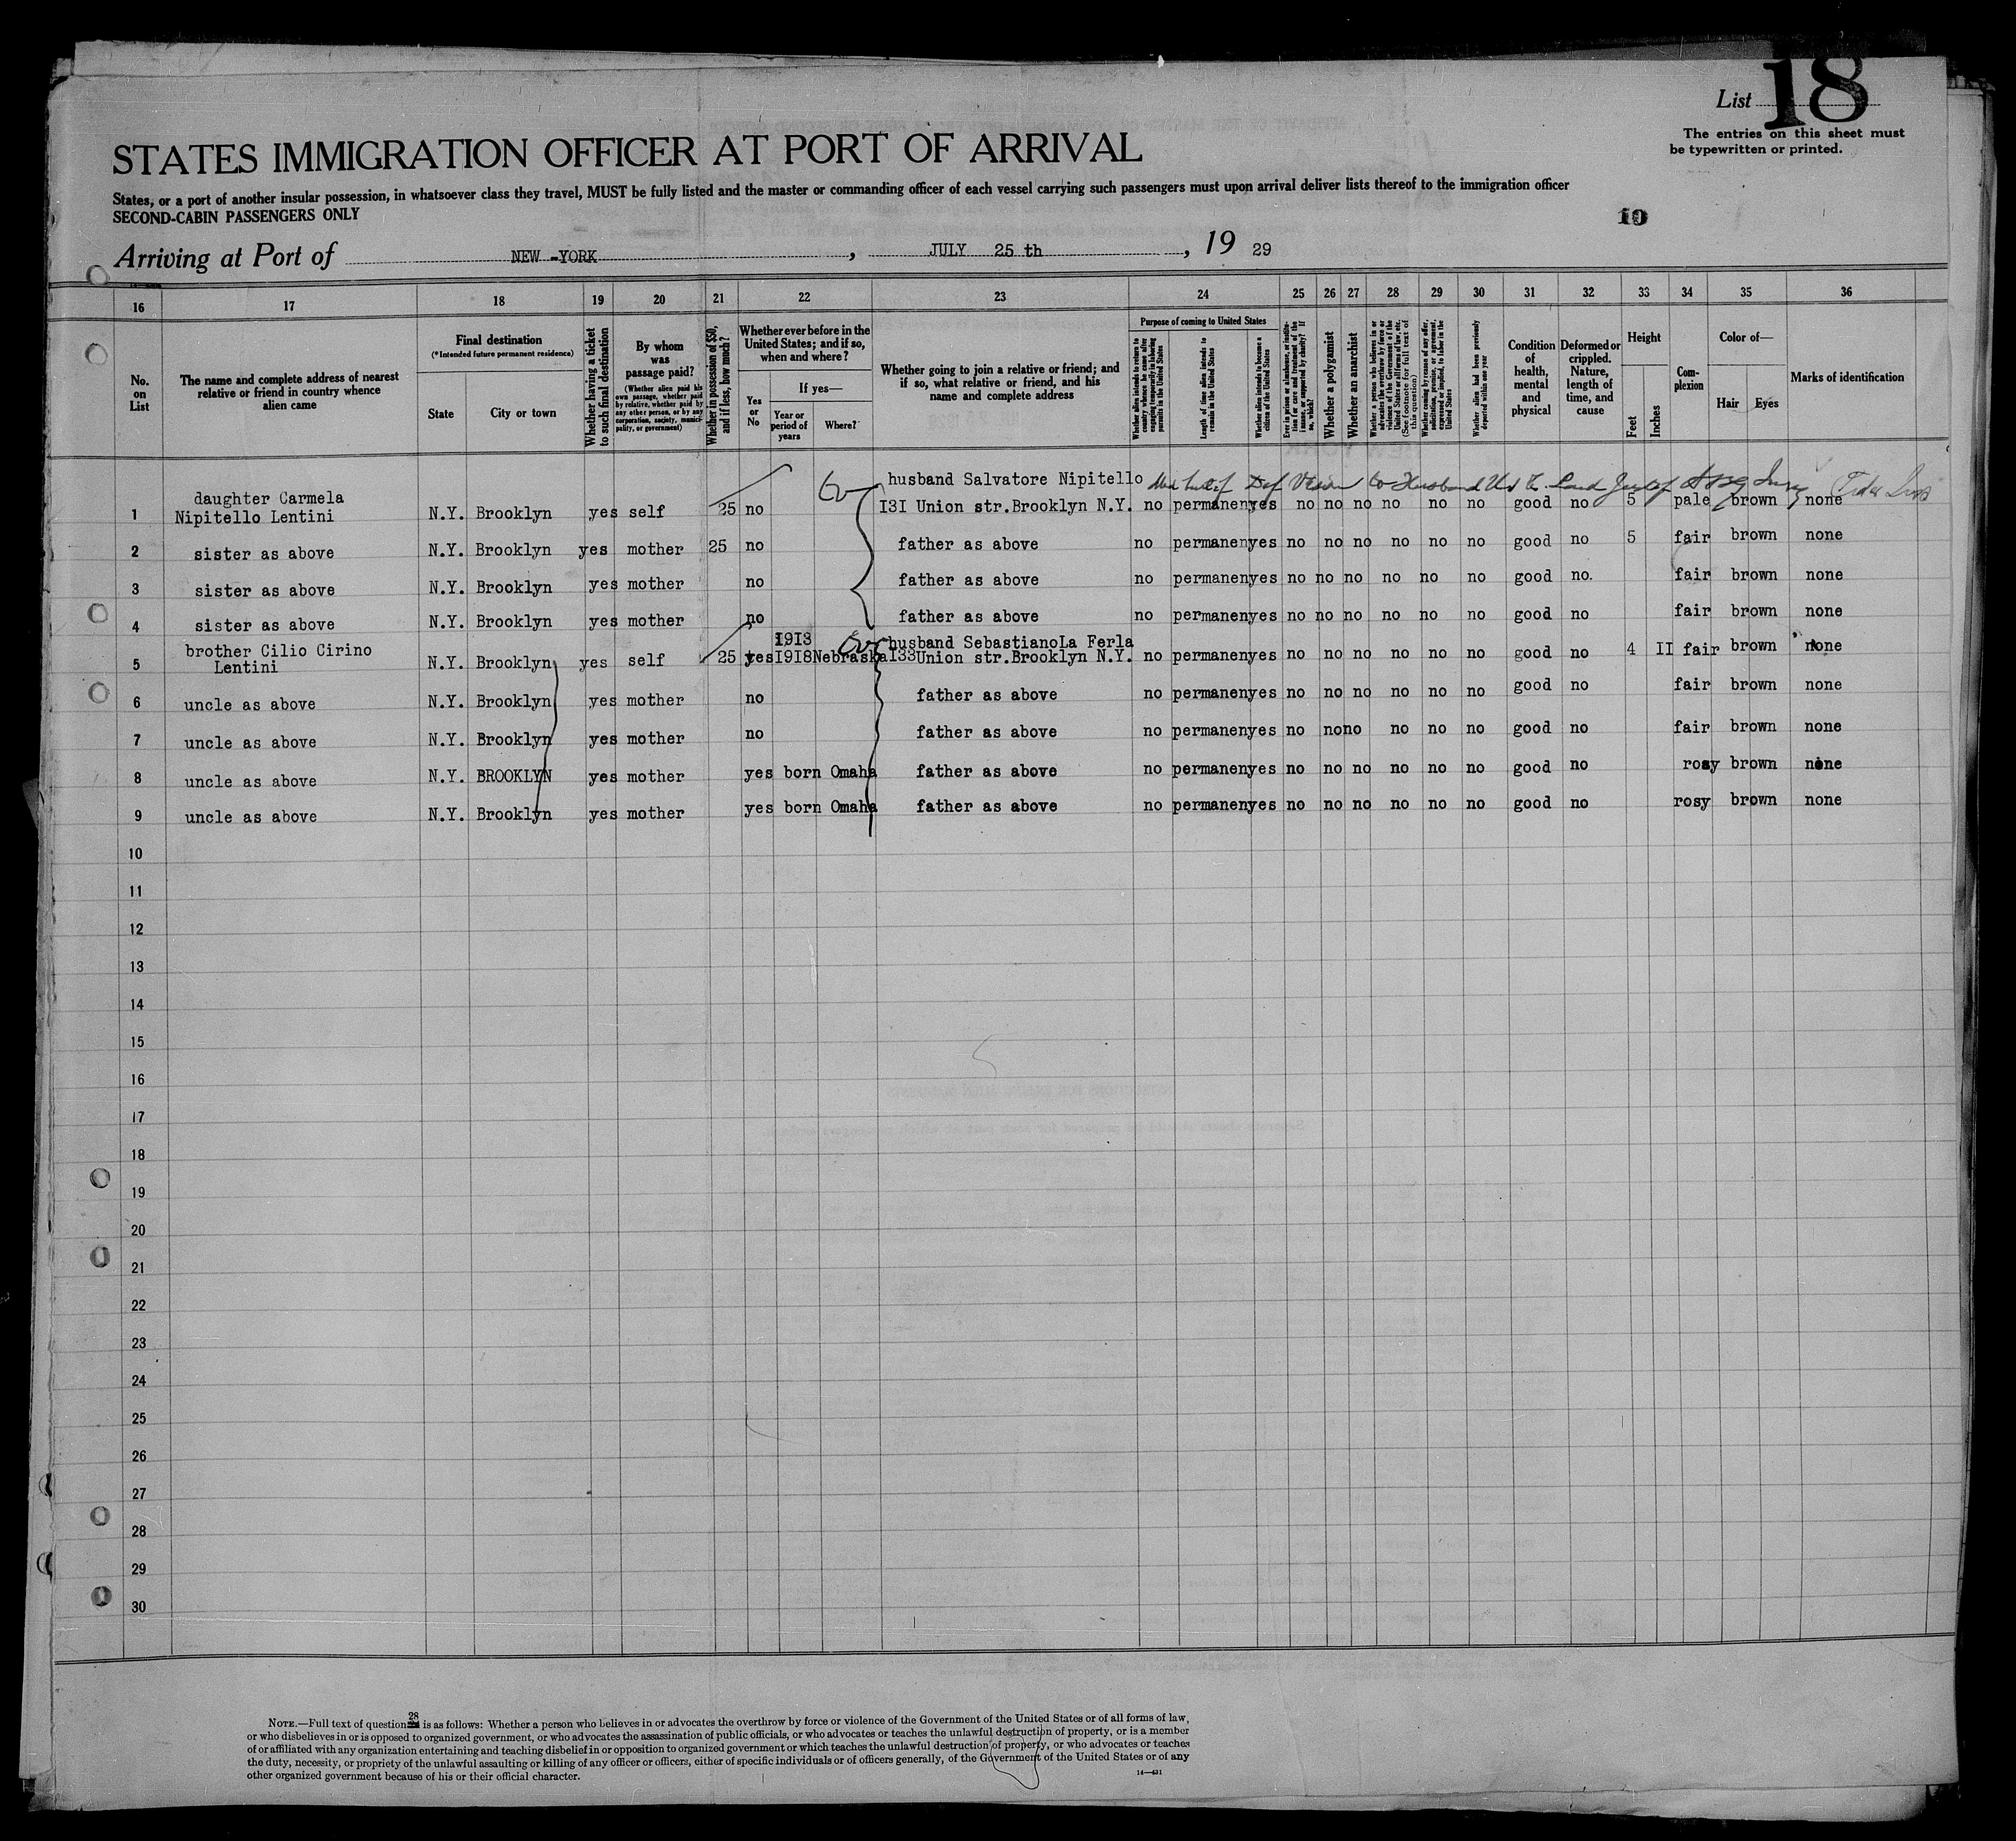 List 18
The entries on this sheet must
be typewritten or printed.
STATES IMMIGRATION OFFICER AT PORT OF ARRIVAL
States, or a port of another insular possession, in whatsoever class they travel, MUST be fully listed and the master or commanding officer of each vessel carrying such passengers must upon arrival deliver lists thereof to the immigration officer
SECOND-CABIN PASSENGERS ONLY
Arriving at Port of NEW-YORK, JULY 25 th, 19 29
16 17 18 19 20 21 22 23 24 25 26 27 28 29 30 31 32 33 34 35 36
No. on List
The name and complete address of nearest relative or friend in country whence alien came
Final destination
(*Intended future permanent residence)
State
City or town
Whether having a ticket to such final destination
By whom was passage paid?
(Whether alien paid his own passage, whether paid by relative, whether paid by any other person, or by any corporation, society, municipality, or government)
Whether in possession of $50, and if less, how much?
Whether ever before in the United States; and if so, when and where?
Yes or No
If yes—
Year or period of years
Where?
Whether going to join a relative or friend; and if so, what relative or friend, and his name and complete address
Purpose of coming to United States
Whether alien intends to return to country whence he came after engaging temporarily in laboring pursuits in the United States
Length of time alien intends to remain in the United States
Whether alien intends to become a citizen of the United States
Ever in prison or almshouse, or institution for care and treatment of the insane, or supported by charity? If so, which?
Whether a polygamist
Whether an anarchist
Whether a person who believes in or advocates the overthrow by force or violence of the Government of the United States or all forms of law, etc. (See footnote for full text of this question)
Whether coming by reason of any offer, solicitation, promise, or agreement, expressed or implied, to labor in the United States
Whether alien had been previously deported within one year
Condition of health, mental and physical
Deformed or crippled. Nature, length of time, and cause
Height
Feet
Inches
Complexion
Color of—
Hair
Eyes
Marks of identification
husband Salvatore Nipitello
1 daughter Carmela Nipitello Lentini N.Y. Brooklyn yes self 25 no I3I Union str.Brooklyn N.Y. no permanen yes no no no no no no good no 5 pale brown none
2 sister as above N.Y. Brooklyn yes mother 25 no father as above no permanen yes no no no no no no good no 5 fair brown none
3 sister as above N.Y. Brooklyn yes mother no father as above no permanen yes no no no no no no good no. fair brown none
4 sister as above N.Y. Brooklyn yes mother no father as above no permanen yes no no no no no no good no fair brown none
I9I3 husband SebastianoLa Ferla
5 brother Cilio Cirino Lentini N.Y. Brooklyn yes self 25 yes I9I8 Nebraska I33Union str.Brooklyn N.Y. no permanen yes no no no no no no good no 4 II fair brown none
6 uncle as above N.Y. Brooklyn yes mother no father as above no permanen yes no no no no no no good no fair brown none
7 uncle as above N.Y. Brooklyn yes mother no father as above no permanen yes no no no no no no good no fair brown none
8 uncle as above N.Y. BROOKLYN yes mother yes born Omaha father as above no permanen yes no no no no no no good no rosy brown none
9 uncle as above N.Y. Brooklyn yes mother yes born Omaha father as above no permanen yes no no no no no no good no rosy brown none
10
11
12
13
14
15
16
17
18
19
20
21
22
23
24
25
26
27
28
29
30
NOTE.—Full text of question 28 is as follows: Whether a person who believes in or advocates the overthrow by force or violence of the Government of the United States or of all forms of law,
or who disbelieves in or is opposed to organized government, or who advocates the assassination of public officials, or who advocates or teaches the unlawful destruction of property, or is a member
of or affiliated with any organization entertaining and teaching disbelief in or opposition to organized government or which teaches the unlawful destruction of property, or who advocates or teaches
the duty, necessity, or propriety of the unlawful assaulting or killing of any officer or officers, either of specific individuals or of officers generally, of the Government of the United States or of any
other organized government because of his or their official character.